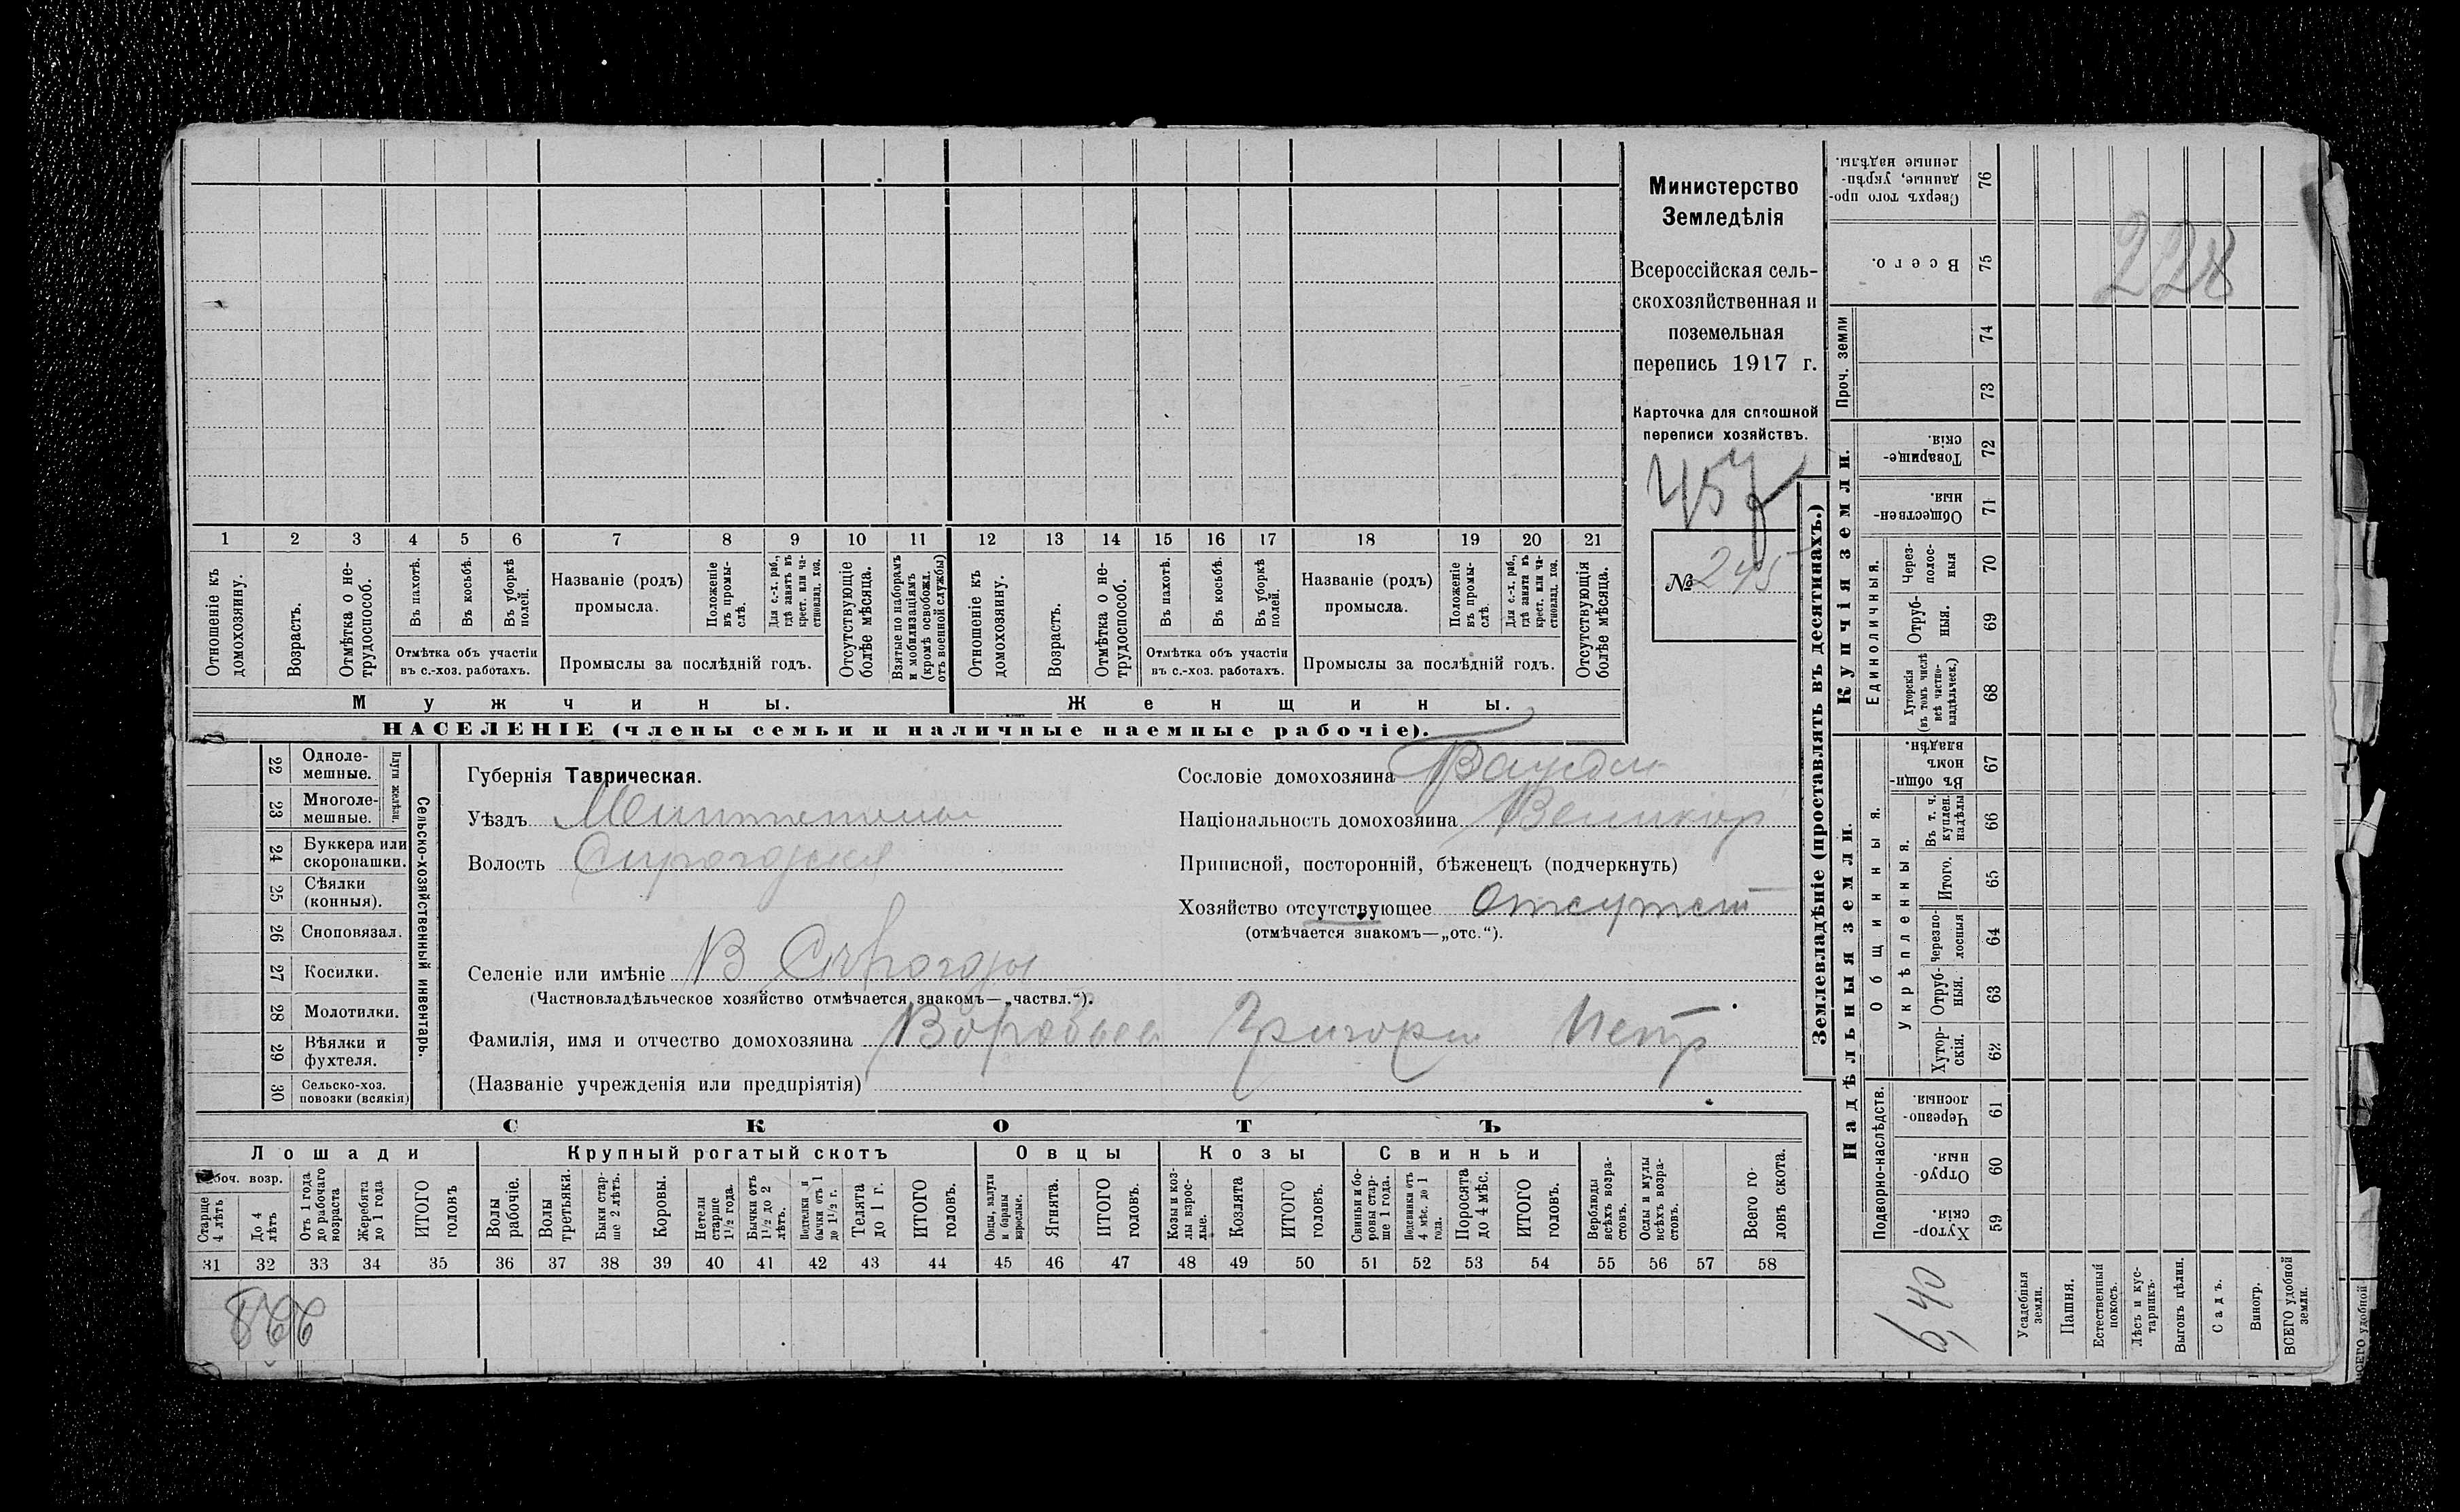 Министерство
Земледѣлія
Всероссійская сель-
скохозяйственная и
поземельная
перепись 1917 г.
Карточка для сплошной
переписи хозяйствъ.
№ 245
1 2 3 4 5 6 7 8 9 10 11 12 13 14 15 16 17 18 19 20 21
Отношеніе къ домохозяину.
Возрастъ.
Отмѣтка о не-трудоспособ.
Въ пахотѣ.
Въ косьбѣ.
Въ уборкѣ полей.
Отмѣтка объ участіи
въ с.-хоз. работахъ.
Названіе (родъ)
промысла.
Положеніе въ промы-слѣ.
Для с.-х. раб., гдѣ занятъ въ крест. или ча-стновлад. хоз.
Промыслы за послѣдній годъ.
Отсутствующіе болѣе мѣсяца.
Взятые по наборамъ и мобилизаціямъ (кромѣ освобожд. отъ военной службы)
Отношеніе къ домохозяину.
Возрастъ.
Отмѣтка о не-трудоспособ.
Въ пахотѣ.
Въ косьбѣ.
Въ уборкѣ полей.
Отмѣтка объ участіи
въ с.-хоз. работахъ.
Названіе (родъ)
промысла.
Положеніе въ промы-слѣ.
Для с.-х. раб., гдѣ занята въ крест. или ча-стновлад. хоз.
Промыслы за послѣдній годъ.
Отсутствующія болѣе мѣсяца.
Мужчины. Женщины.
НАСЕЛЕНІЕ (члены семьи и наличные наемные рабочіе).
Сельско-хозяйственный инвентарь.
Плуги желѣзн.
22 Одноле-мешные.
23 Многоле-мешные.
24 Буккера или скоропашки.
25 Сѣялки (конныя).
26 Сноповязал.
27 Косилки.
28 Молотилки.
29 Вѣялки и фухтеля.
30 Сельско-хоз. повозки (всякія)
Губернія Таврическая.
Уѣздъ
Волость
Селеніе или имѣніе В Сѣрогозы
(Частновладѣльческое хозяйство отмѣчается знакомъ—„частвл.“).
Фамилія, имя и отчество домохозяина Воробьев Григори Петр
(Названіе учрежденія или предпріятія)
Сословіе домохозяина
Національность домохозяина Великор
Приписной, посторонній, бѣженецъ (подчеркнуть)
Хозяйство отсутствующее Отсутст
(отмѣчается знакомъ—„отс.“).
СКОТЪ
Лошади Крупный рогатый скотъ Овцы Козы Свиньи
Рабоч. возр.
Старше 4 лѣтъ
До 4 лѣтъ
Отъ 1 года до рабочаго возраста
Жеребята до 1 года
ИТОГО головъ
Волы рабочіе.
Волы третьяки.
Быки стар-ше 2 лѣтъ.
Коровы.
Нетели старше 1½ года.
Бычки отъ 1½ до 2 лѣтъ.
Подтелки и бычки отъ 1 до 1½ г.
Телята до 1 г.
ИТОГО головъ.
Овцы, валухи и бараны взрослые.
Ягнята.
ИТОГО головъ.
Козы и коз-лы взрос-лые.
Козлята
ИТОГО головъ.
Свиньи и бо-ровы стар-ше 1 года.
Подсвинки отъ 4 мѣс. до 1 года.
Поросята до 4 мѣс.
ИТОГО головъ.
Верблюды всѣхъ возра-стовъ.
Ослы и мулы всѣхъ возра-стовъ.
Всего го-ловъ скота.
31 32 33 34 35 36 37 38 39 40 41 42 43 44 45 46 47 48 49 50 51 52 53 54 55 56 57 58
Землевладѣніе (проставлять въ десятинахъ.)
Купчія земли.
Надѣльныя земли.
Сверхъ того про-данные, укрѣп-ленные надѣлы. 76
Всего. 75
Проч. земли 74 73
Товарище-скія. 72
Обществен-ныя. 71
Единоличныя.
Через-полос-ныя 70
Отруб-ныя. 69
Хуторскія (въ томъ числѣ всѣ частно-владѣльческ.) 68
Общинныя.
Въ общин-номъ владѣн. 67
Укрѣпленныя.
Въ т. ч. куплен. надѣлы 66
Итого. 65
черезпо-лосныя 64
Отруб-ныя. 63
Хутор-скія. 62
Подворно-наслѣдств.
Черезпо-лосныя. 61
Отруб-ныя. 60
Хутор-скія. 59
228
6,40
Усадебныя земли.
Пашня.
Естественный покосъ.
Лѣсъ и кус-тарникъ.
Выгонъ цѣлин.
Садъ.
Виногр.
ВСЕГО удобной земли.